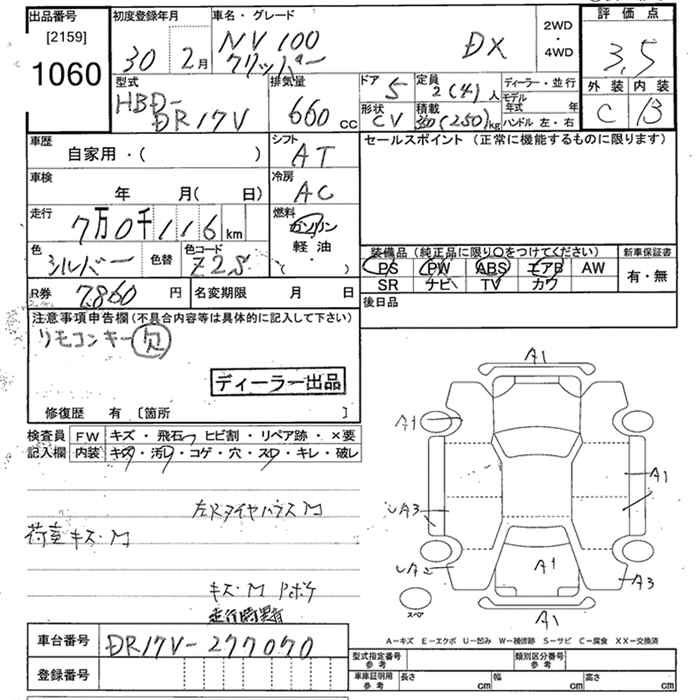 出品番号
[2159]
1060
初度登録年月
30 2月
車名・グレード
NV100
クリッパー
DX
2WD
・
4WD
評価点
3.5
外装 内装
C B
型式
HBD-
DR17V
排気量
660 cc
ドア
5
定員
2(4)人
形状
CV
積載
350(250)kg
ディーラー・並行
モデル年式 年
ハンドル 左・右
車歴
自家用・( )
シフト
AT
セールスポイント (正常に機能するものに限ります)
車検
年 月( 日)
冷房
AC
走行
7万0千116km
燃料
ガソリン
軽油
( )
色
シルバー
色替
色コード
Z2S
装備品 (純正品に限り○をつけてください)
新車保証書
PS PW ABS エアB AW
SR ナビ TV カワ
有・無
R券 7860円
名変期限 月 日
後日品
注意事項申告欄(不具合内容等は具体的に記入して下さい)
リモコンキー欠
ディーラー出品
修復歴 有 〔箇所 〕
検査員
記入欄
FW キズ・飛石・ヒビ割・リペア跡・×要
内装 キズ・汚レ・コゲ・穴・スレ・キレ・破レ
左Rタイヤハウス M
荷室キズ・M
キズ・M Rボデ
A1
A1
A1
A3
A2
A1
A3
A1
スペア
A－キズ E－エクボ U－凹み W－補修跡 S－サビ C－腐食 XX－交換済
車台番号 DR17V-277070
登録番号
型式指定番号
参考
類別区分番号
参考
車庫証明用
参考
長さ cm 幅 cm 高さ cm